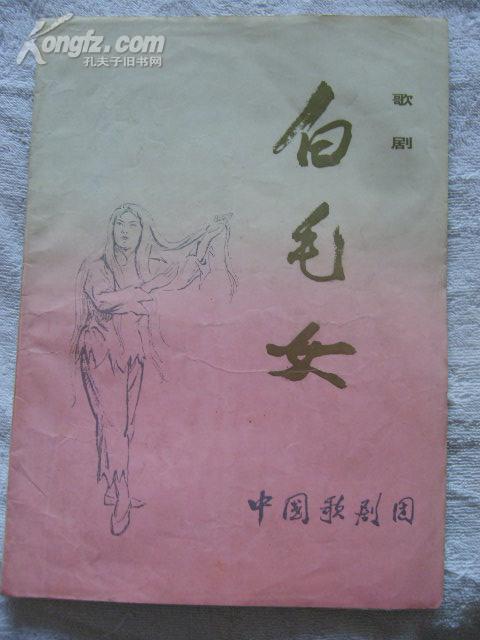 Kongfz.com
孔夫子旧书网
歌剧
白毛女
中國歌剧团